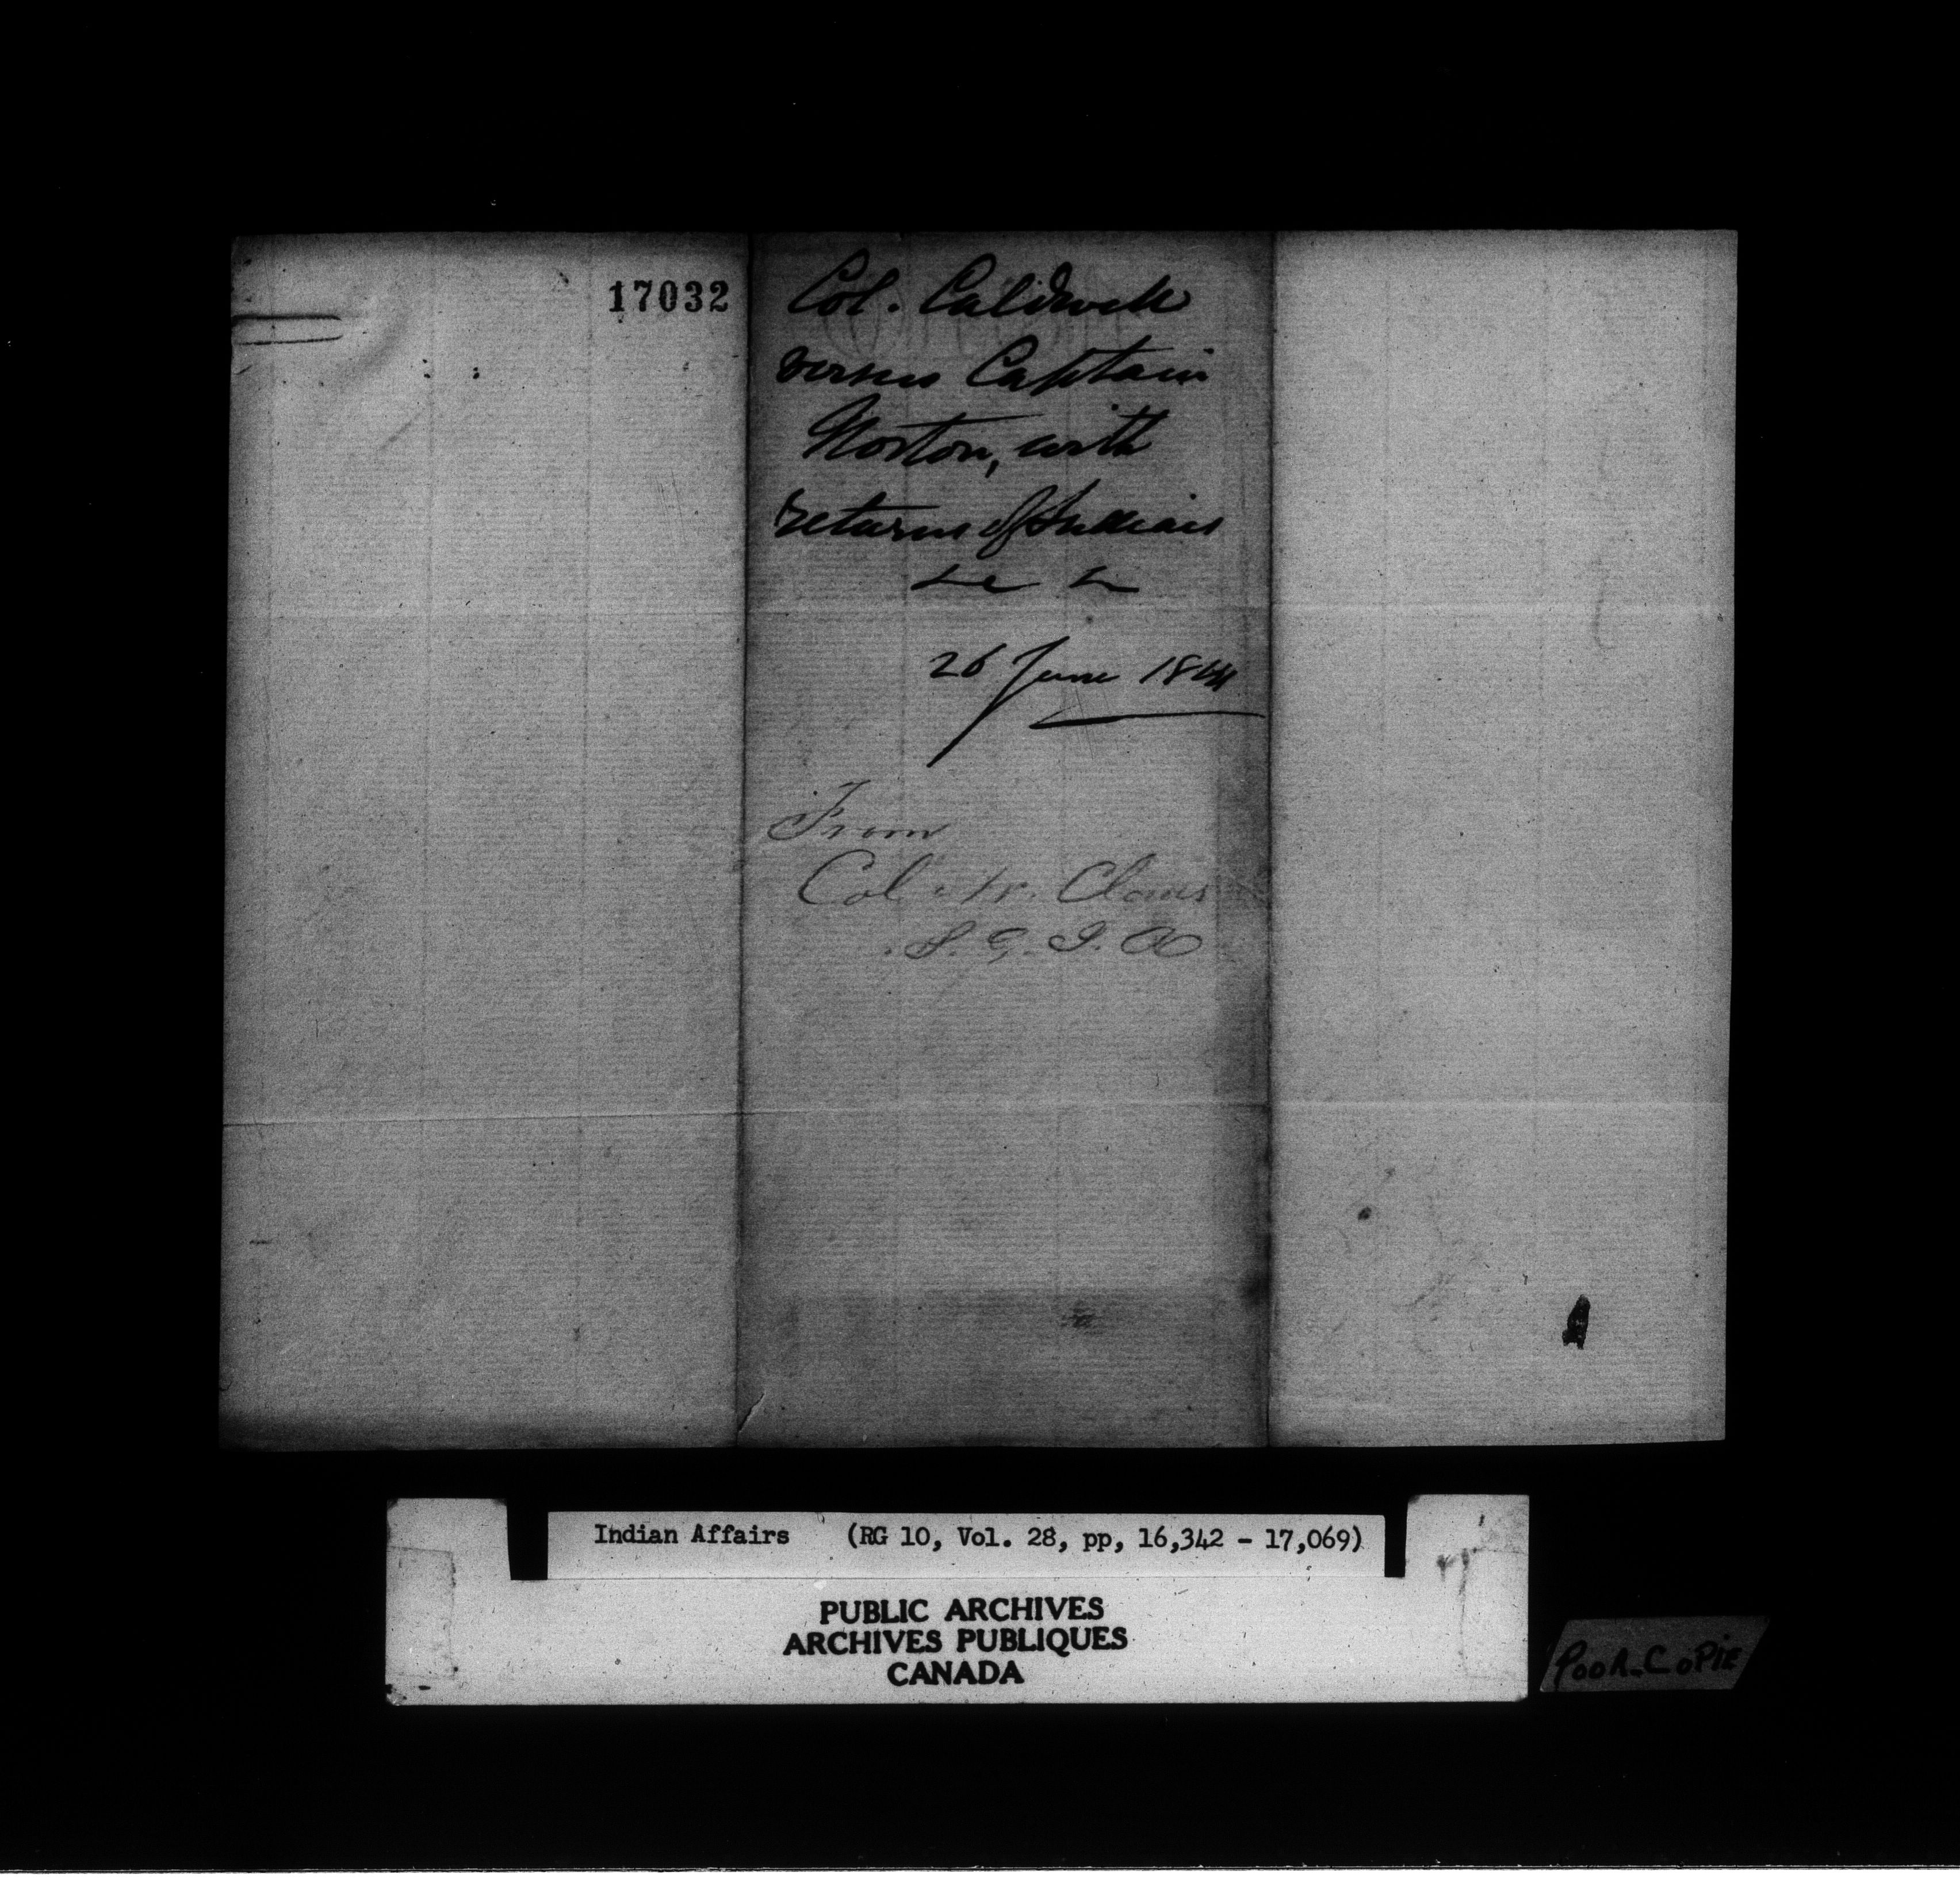 17032
Col. Caldwell
versus Captain
Norton, with
returns of Indians
&c &c
26 June 1814
From
Col. W. Claus
S. G. I. A
Indian Affairs (RG 10, Vol. 28, pp, 16,342 - 17,069)
PUBLIC ARCHIVES
ARCHIVES PUBLIQUES
CANADA
POOR COPIE